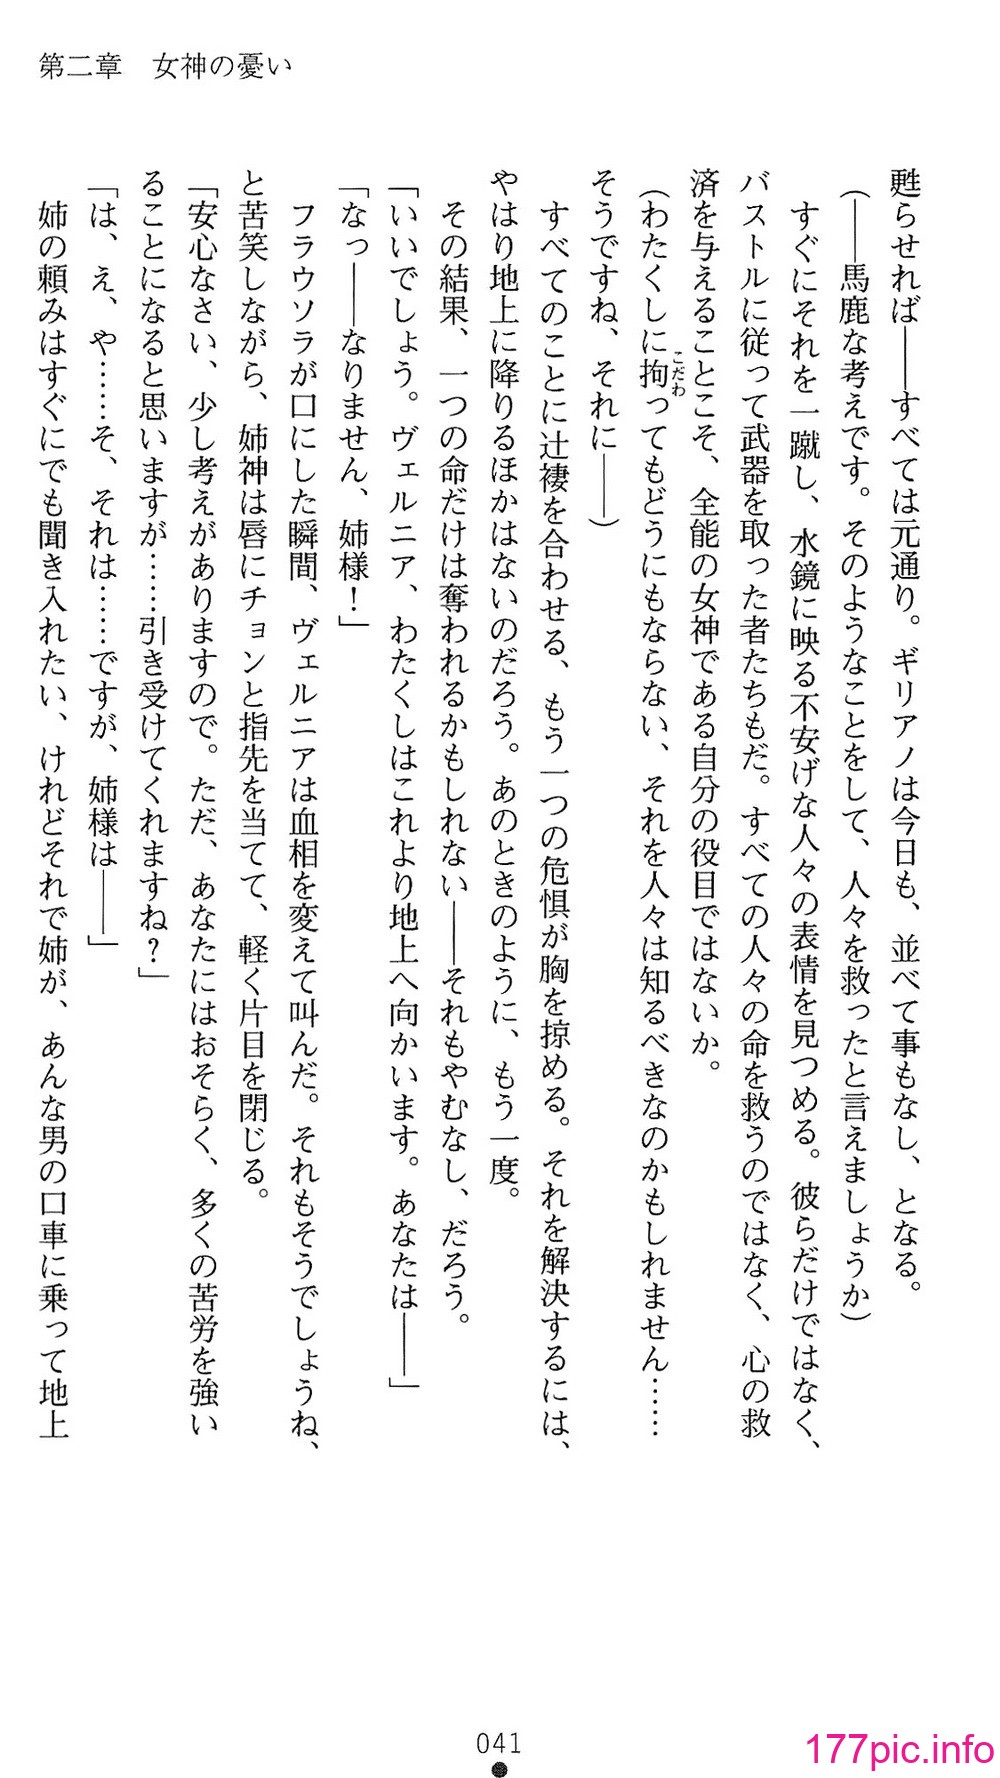 第二章　女神の憂い
甦らせれば――すべては元通り。ギリアノは今日も、並べて事もなし、となる。
（――馬鹿な考えです。そのようなことをして、人々を救ったと言えましょうか）
　すぐにそれを一蹴し、水鏡に映る不安げな人々の表情を見つめる。彼らだけではなく、
バストルに従って武器を取った者たちもだ。すべての人々の命を救うのではなく、心の救
済を与えることこそ、全能の女神である自分の役目ではないか。
（わたくしに拘ってもどうにもならない、それを人々は知るべきなのかもしれません……
こだわ
そうですね、それに――）
　すべてのことに辻褄を合わせる、もう一つの危惧が胸を掠める。それを解決するには、
やはり地上に降りるほかはないのだろう。あのときのように、もう一度。
　その結果、一つの命だけは奪われるかもしれない――それもやむなし、だろう。
「いいでしょう。ヴェルニア、わたくしはこれより地上へ向かいます。あなたは――」
「なっ――なりません、姉様！」
　フラウソラが口にした瞬間、ヴェルニアは血相を変えて叫んだ。それもそうでしょうね、
と苦笑しながら、姉神は唇にチョンと指先を当てて、軽く片目を閉じる。
「安心なさい、少し考えがありますので。ただ、あなたにはおそらく、多くの苦労を強い
ることになると思いますが……引き受けてくれますね？」
「は、え、や……そ、それは……ですが、姉様は――」
　姉の頼みはすぐにでも聞き入れたい、けれどそれで姉が、あんな男の口車に乗って地上
041
177pic.info